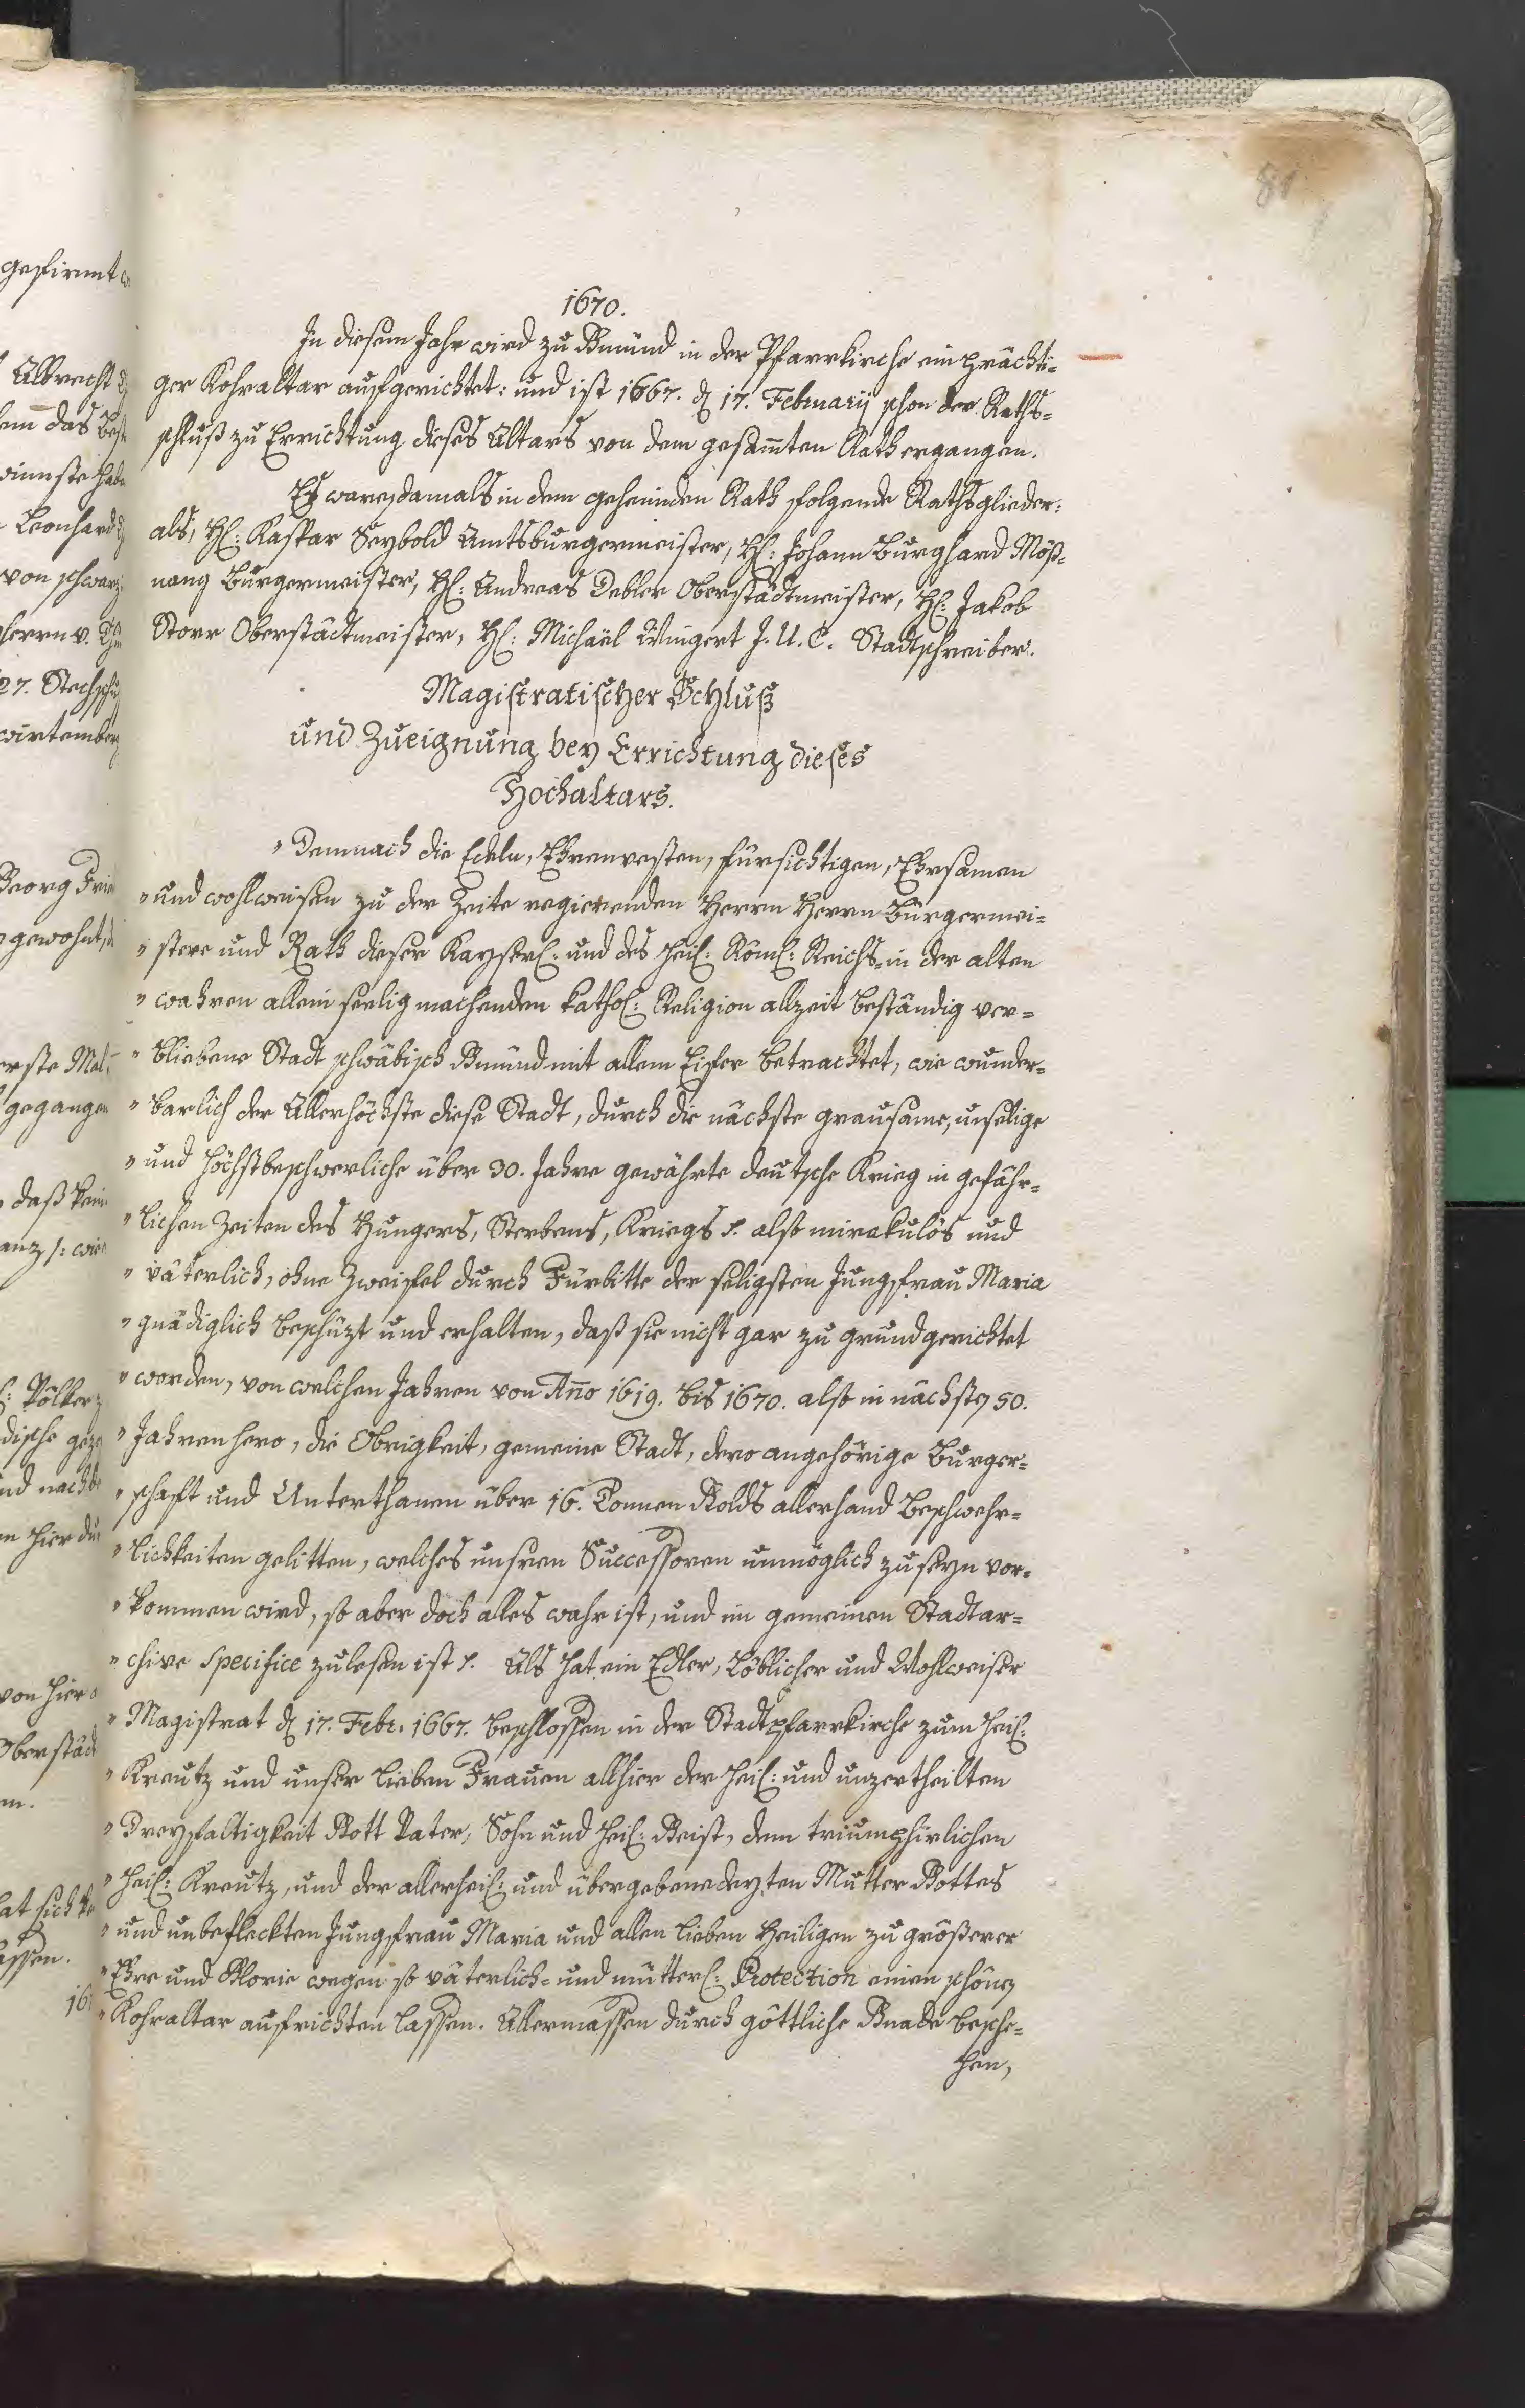 81
1670.
In diesem Jahr wird zu Gmünd in der Pfarrkirche ein prächti-
ger Kohraltar aufgerichtet: und ist 1667. d. 17. Februarij schon der Raths-
schluß zu Errichtung dieses Altars von dem gesam̄ten Rath ergangen.
Es waren damals in dem geheimden Rath folgende Rathsglieder:
als, H: Kaspar Seybold Amtsburgermeister, H: Johann Burghard Möß-
nang Burgermeister, H: Andreas Debler Oberstädtmeister, H: Jakob
Storr Oberstädtmeister, H: Michaël Wingert J. U. C. Stadtschreiber.
Magistratischer Schluß
und Zueignung bey Errichtung dieses
Hochaltars.
" Demnach die Edeln, Ehrenvesten, fürsichtigen, Ehrsamen
" und wohlweisen zu der Zeite regierenden Herrn Herrn Burgermei-
" stere und Rath dieser Kayserl: und des Heil: Röml: Reichs- in der alten
" wahren allein seelig machenden kathol: Religion allzeit beständig ver-
" bliebene Stadt schwäbisch Gmünd mit allem Eifer betrachtet, wie wunder-
" barlich der Allerhöchste diese Stadt, durch die nächste grausame, unselige
" und höchstbeschwerliche über 30. Jahre gewährte deutsche Krieg in gefähr-
" lichen Zeiten des Hungers, Sterbens, Kriegs ꝛc. also mirakulos und
" väterlich, ohne Zweifel durch Fürbitte der seligsten Jungfrau Maria
" gnädiglich beschüzt und erhalten, daß sie nicht gar zu grund gerichtet
" worden, von welchen Jahren von An̄o 1619. bis 1670. also in nächsten 50.
" Jahren hero, die Obrigkeit, gemeine Stadt, dero angehörige Burger-
" schaft und Unterthanen über 16. Tonnen Golds allerhand Beschwehr-
" lichkeiten gelitten, welches unsren Successoren unmöglich zu seyn vor-
" kommen wird, so aber doch alles wahr ist, und im gemeinen Stadtar-
" chive specifice zulesen ist ꝛc. Als hat ein Edler, Löblicher und Wohlweiser
" Magistrat d. 17. Febr. 1667. beschlossen in der Stadtpfarrkirche zum Heil:
" Kreutz und unser lieben Frauen allhier der Heil: und unzertheilten
" Dreyfaltigkeit Gott Vater, Sohn und Heil: Geist, dem triumphirlichen
" Heil: Kreutz, und der allerheil: und übergebenedeyten Mutter Gottes
" und unbefleckten Jungfrau Maria und allen lieben Heiligen zu größerer
" Ehre und Glorie wegen so väterlich- und mütterl: Protection einen schönen
" Kohraltar aufrichten lassen. Allermassen durch göttliche Gnade besche-
hen,